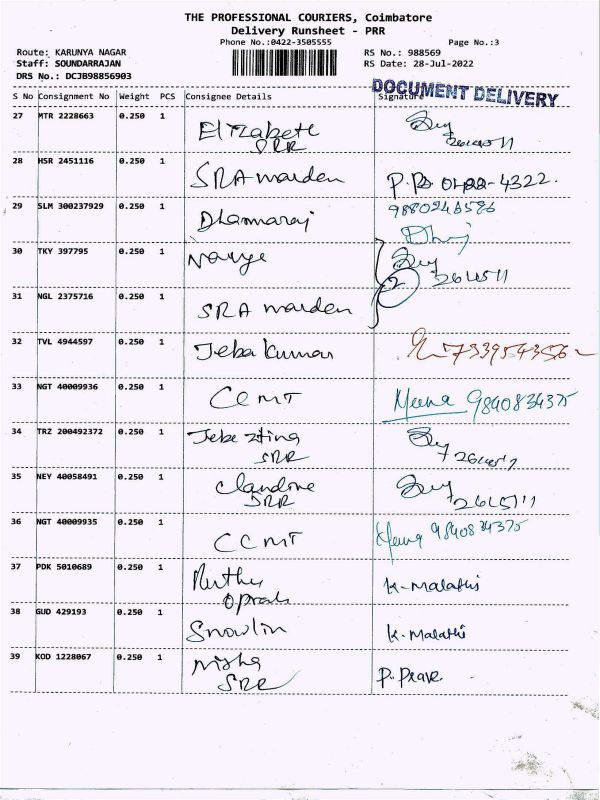 THE PROFESSIONAL COURIERS, Coimbatore
Delivery Runsheet - PRR
Phone No.:0422-3505555 Page No.:3
Route: KARUNYA NAGAR RS No.: 988569
Staff: SOUNDARRAJAN RS Date: 28-Jul-2022
DRS No.: DCJB98856903
DOCUMENT DELIVERY
S No Consignment No Weight PCS Consignee Details Signature
27 MTR 2228663 0.250 1 Elizabeth
SRR
28 HSR 2451116 0.250 1 SRA maiden 4322
29 SLM 300237929 0.250 1 Dhanmaraj 9880246586
30 TKY 397795 0.250 1
2
31 NGL 2375716 0.250 1 SRA maiden
32 TVL 4944597 0.250 1 Jeba Kumar
33 NGT 40009936 0.250 1 CCMT Meena 9840834375
34 TRZ 200492372 0.250 1
SRR
35 NEY 40058491 0.250 1
SRR
36 NGT 40009935 0.250 1 CCMT Meena 9840834375
37 PDK 5010689 0.250 1 K. Malathi
38 GUD 429193 0.250 1 Snowlin K. Malathi
39 KOD 1228067 0.250 1 Nisha
SRR